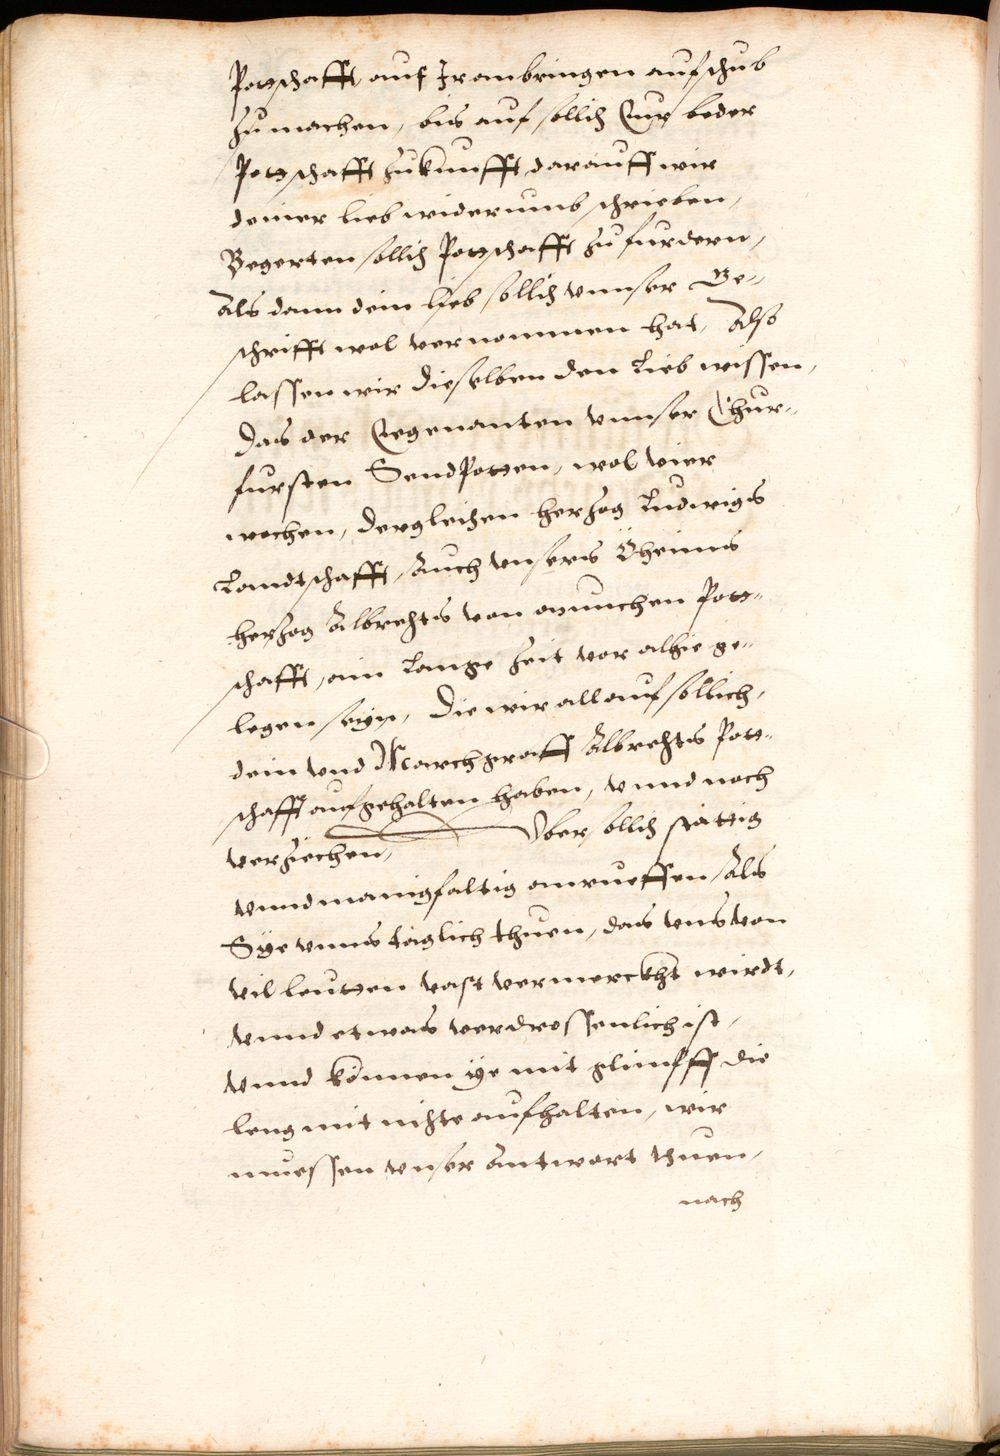 Pottschafft, auf Jr anbringen aufschub
zumachen, bis auf sollich Eur beder
Pottschafft zukunfft, darauff wir
deiner lieb widerumb schrieben,
Begerten sollich Pottschafft zu furdern,
Als dann dein lieb sollich vnnser Ge-
schrifft wol vernommen hat, Also
lassen wir dieselben dein Lieb wissen,
Das der Egenanten vnnser Chur-
fursten SendPotten, wol vier
wochen, dergleichen herzog Ludwigs
Landtschafft, Auch vnsers Öheims
herzog Albrechts von munchen Pott-
schafft, ain Lange zeit vor alhie ge-
legen seyn, Die wir all auf sollich,
dein vnd Marchgraff Albrechts Pott-
schafft aufgehalten haben, vnnd noch
verziechen, Vber sollich stättig
vnnd manigfaltig anrueffen Als
Sÿe vnns täglich thuen, das vns von
vil leutten vast vermerckht wirdt,
vnnd etwas verdrossenlich ist,
vnnd konnen ÿe mit glimpff die
leng mit nichte aufhalten, wir
muessen vnser Antwort thuen,
nach